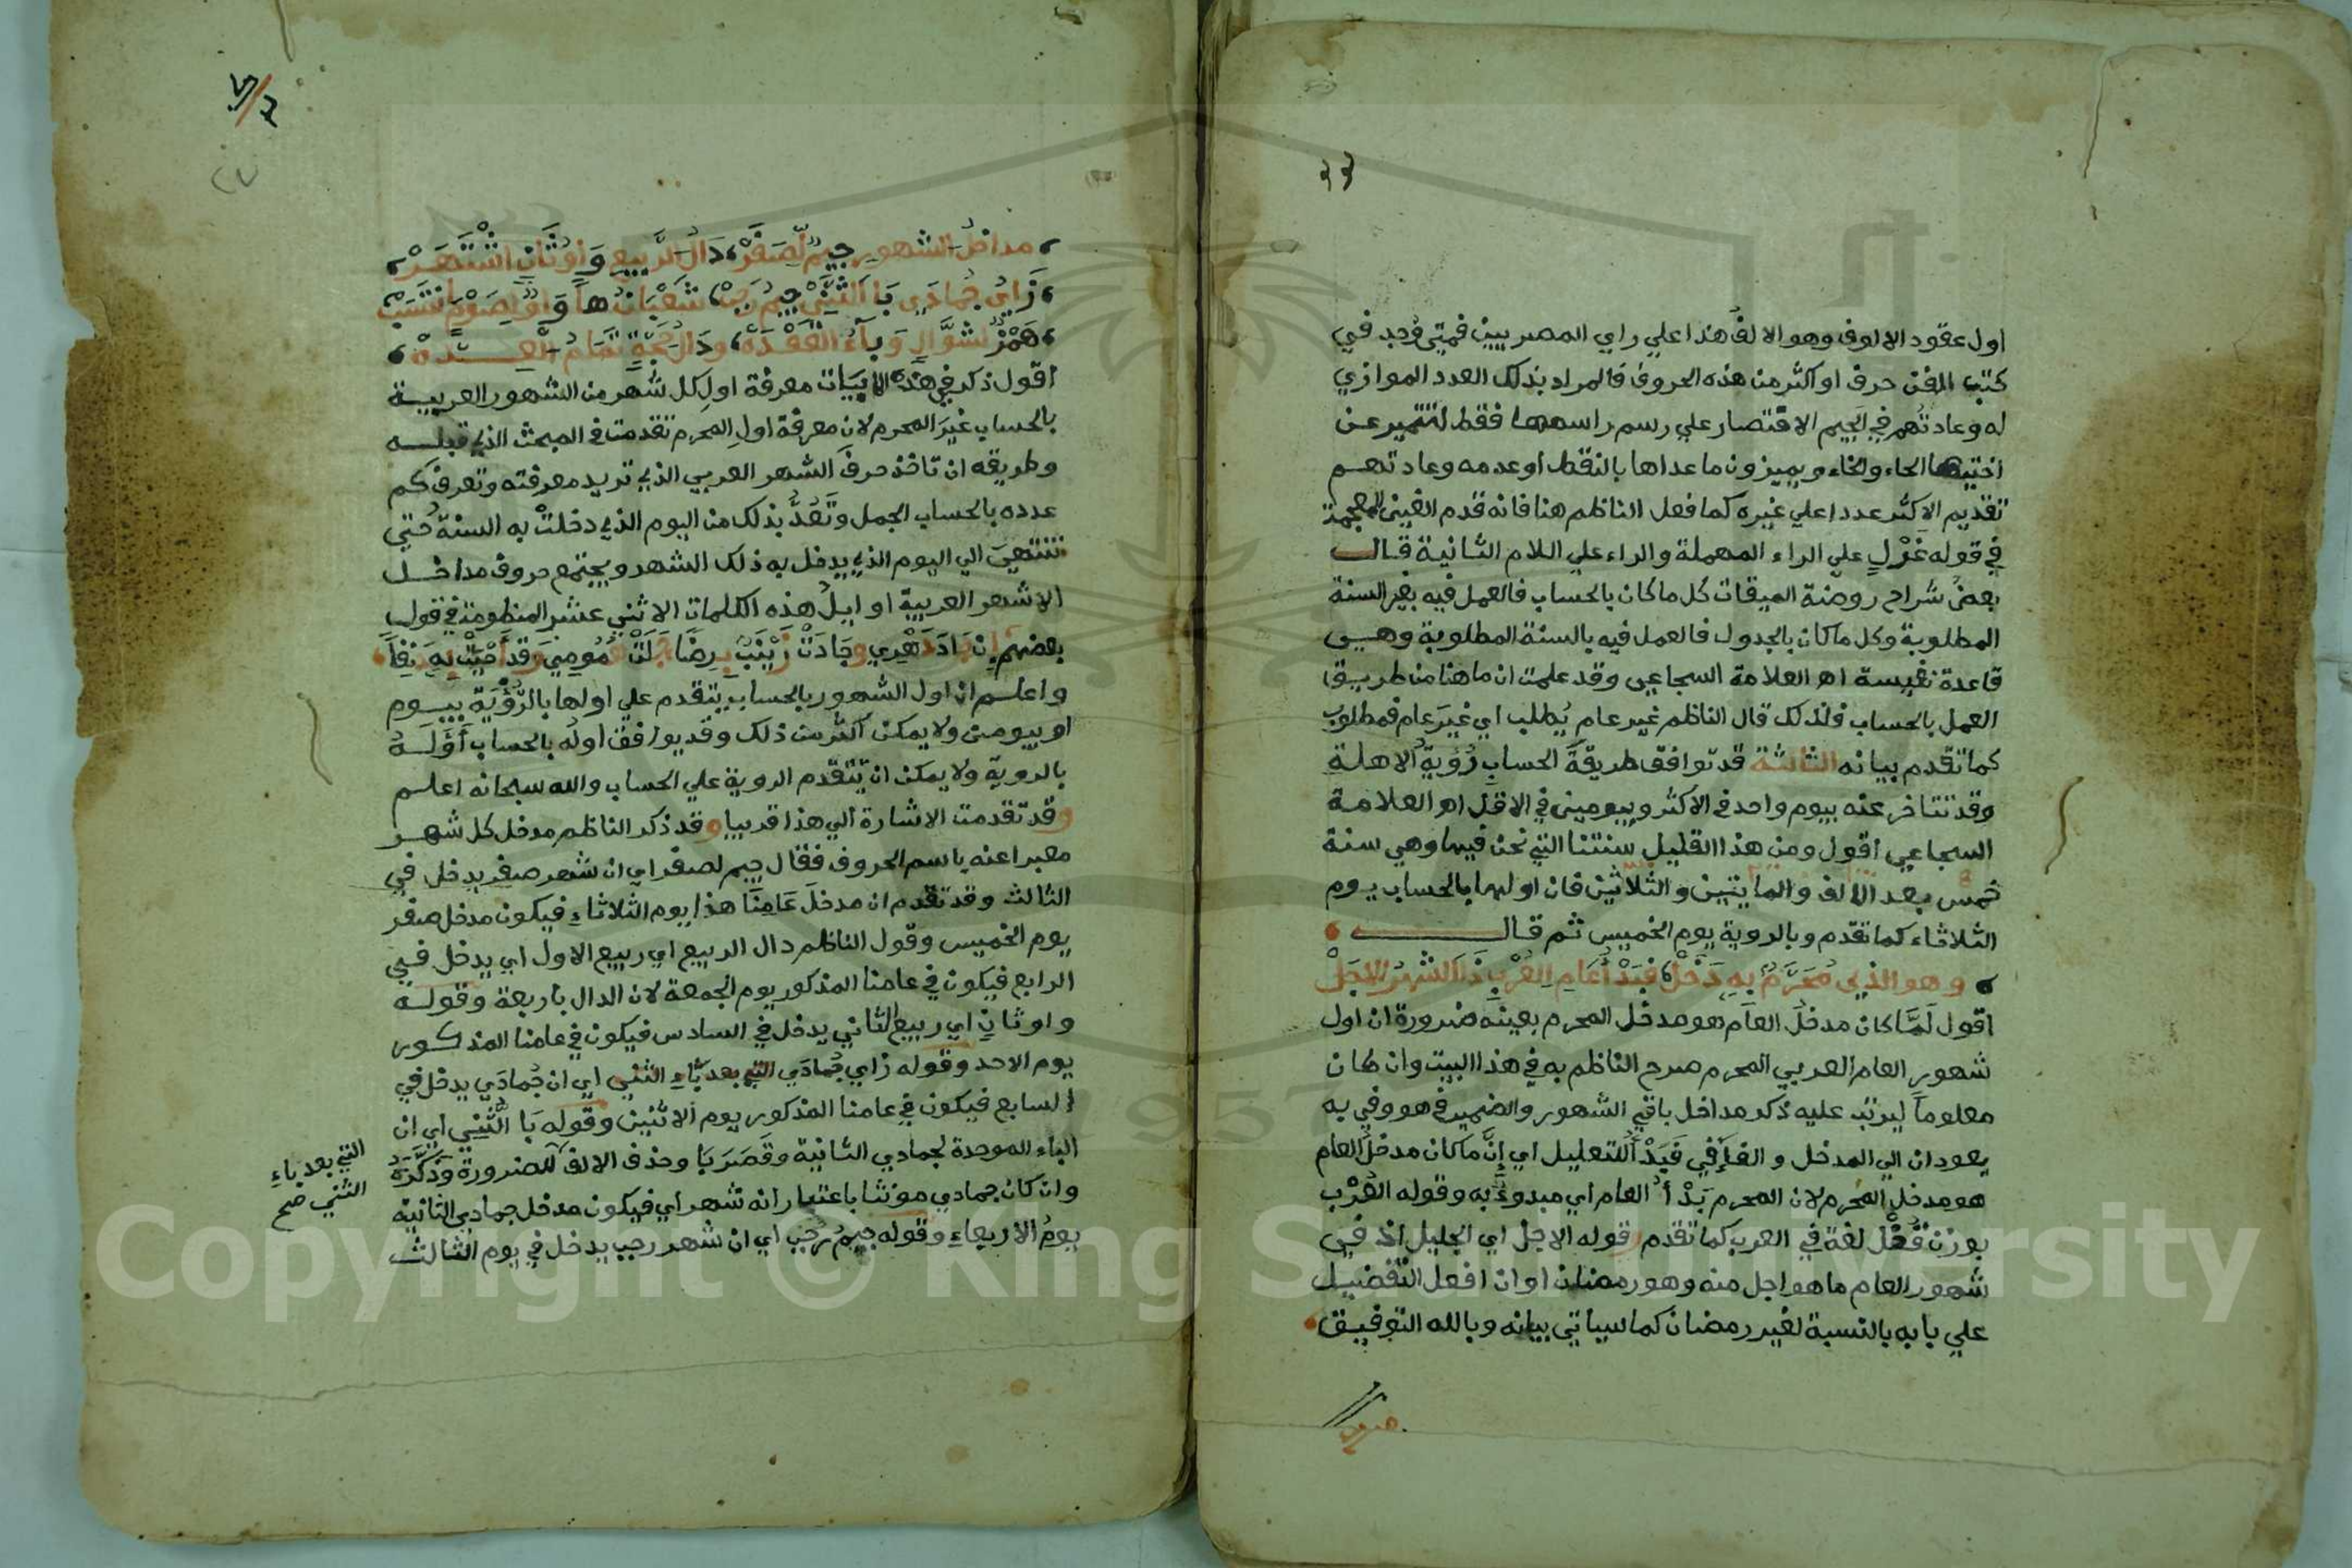 اول عقود الالوف وهو الالف هذا علي راي المصريين فمتي وُجد في
كتب الفن حرف او اكثر من هذه الحروف فالمراد بذلك العدد الموازي
له وعادتهم في الجيم الاقتصار علي رسم راسها فقط لتتميز عن
اختيها الحاء والخاء ويميزون ما عداها بالنقط او عدمه وعادتهم
تقديم الاكثر عددا علي غيره كما فعل الناظم هنا فانه قدم الغين المعجمة
في قوله غرل علي الراء المهملة والراء علي اللام الثانية قال
بعض شراح روضة الميقات كل ما كان بالحساب فالعمل فيه بغير السنة
المطلوبة وكل ما كان بالجدول فالعمل فيه بالسنة المطلوبة وهي
قاعدة نفيسة اه العلامة السجاعي وقد علمت ان ما هنا من طريق
العمل بالحساب فلذلك قال الناظم غير عام يُطلب اي غيرَ عام فمطلوب
كما تقدم بيانه الثالثة قد توافق طريقةَ الحسابِ رُؤيةُ الاهلةِ
وقد تتاخر عنه بيوم واحد في الاكثر وبيومين في الاقل اه العلامة
السجاعي اقول ومن هذا القليل سنتنا التي نحن فيها وهي سنة
خمس بعد الالف والمايتين والثلاثين فان اولها بالحساب يوم
الثلاثاء كما تقدم وبالروية يوم الخميس ثم قال
وهو الذي مُحَرَّمٌ بِهِ دَخَلْ فَبَدْأُ عَامِ العُرْبِ ذَا الشهرُ الاجَلْ
اقول لَمَّا كان مدخلُ العام هو مدخل المحرم بعينه ضرورة ان اول
شهور العام العربي المحرم صرح الناظم به في هذا البيت وان كان
معلوماً ليرتب عليه ذكر مداخل باقي الشهور والضمير في هو وفي به
يعودان الي المدخل والفاء في فَبَدْأُ للتعليل اي إنَّ ما كان مدخلُ العام
هو مدخل المحرم لان المحرم بَدْأُ العام اي مبدوءٌ به وقوله العُرْب
بوزن قُفْل لغة في العرب كما تقدم وقوله الاجل اي الجليل اذ في
شهور العام ما هو اجل منه وهو رمضان او ان افعل التفضيل
علي بابه بالنسبة لغير رمضان كما سياتي بيانه وبالله التوفيق
مداخلُ الشهورِ جيمٌ لِصَفَرْ دَالُ الرَّبيعِ وَاوُ ثَانٍ اشْتَهَرْ
زَايُ جُمادَي بَا الثَنِّي جِيمُ رَجَبْ شَعْبَانُ هَا وَاوٌ لِصَوْمٍ انْتَسَبْ
هَمْزُ شَوَّالٍ وَبَاءُ القَعْدَهْ وَدَالُ حِجَّةٍ تَمَامُ العِدَّهْ
اقول ذكر في هذه الابيات معرفة اول كل شهر من الشهور العربية
بالحساب غيرَ المحرم لان معرفة اولِ المحرم تقدمت في المبحث الذي قبله
وطريقه ان تاخذ حرفَ الشهر العربي الذي تريد معرفته وتعرف كم
عدده بالحساب الجمل وتَعُدُّ بذلك من اليوم الذي دخلتْ به السنة حتي
تنتهيَ الي اليوم الذي يدخل به ذلك الشهر ويجتمع حروف مداخل
الاشهر العربية اوايلُ هذه الكلمات الاثني عشر المنظومة في قول
بعضهم
واعلم ان اول الشهور بالحساب يتقدم علي اولها بالرُّؤْيَة بيوم
او بيومين ولا يمكن اكثر من ذلك وقد يوافق اوله بالحساب أَوَّلَهُ
بالروية ولا يمكن ان تتقدم الروية علي الحساب والله سبحانه اعلم
وقد تقدمت الاشارة الي هذا قريبا وقد ذكر الناظم مدخل كل شهر
معبرا عنه باسم الحروف فقال جيم لصفر اي ان شهر صفر يدخل في
الثالث وقد تقدم ان مدخلَ عَامِنَا هذا يوم الثلاثاء فيكون مدخل صفر
يوم الخميس وقول الناظم دال الربيع اي ربيع الاول اي يدخل في
الرابع فيكون في عامنا المذكور يوم الجمعة لان الدال باربعة وقوله
واو ثانٍ اي ربيع الثاني يدخل في السادس فيكون في عامنا المذكور
يوم الاحد وقوله زاي جُمادَي التي بعد بَاءِ الثني اي ان جُمادَي يدخل في
السابع فيكون في عامنا المذكور يوم الاثنين وقوله بَا الثَّنِي اي ان
الباء الموحدة لجمادي الثانية وقَصَرَ بَا وحذف الالف للضرورة وذَكَّرَهُ
وان كان جمادي مونثا باعتبار انه شهر اي فيكون مدخل جمادي الثانية
يومُ الاربعاءِ وقوله جيمُ رَجَبٍ اي ان شهر رجب يدخل في يوم الثالث
التي بعد باءِ
الثني صح
Copyright © King Saud University